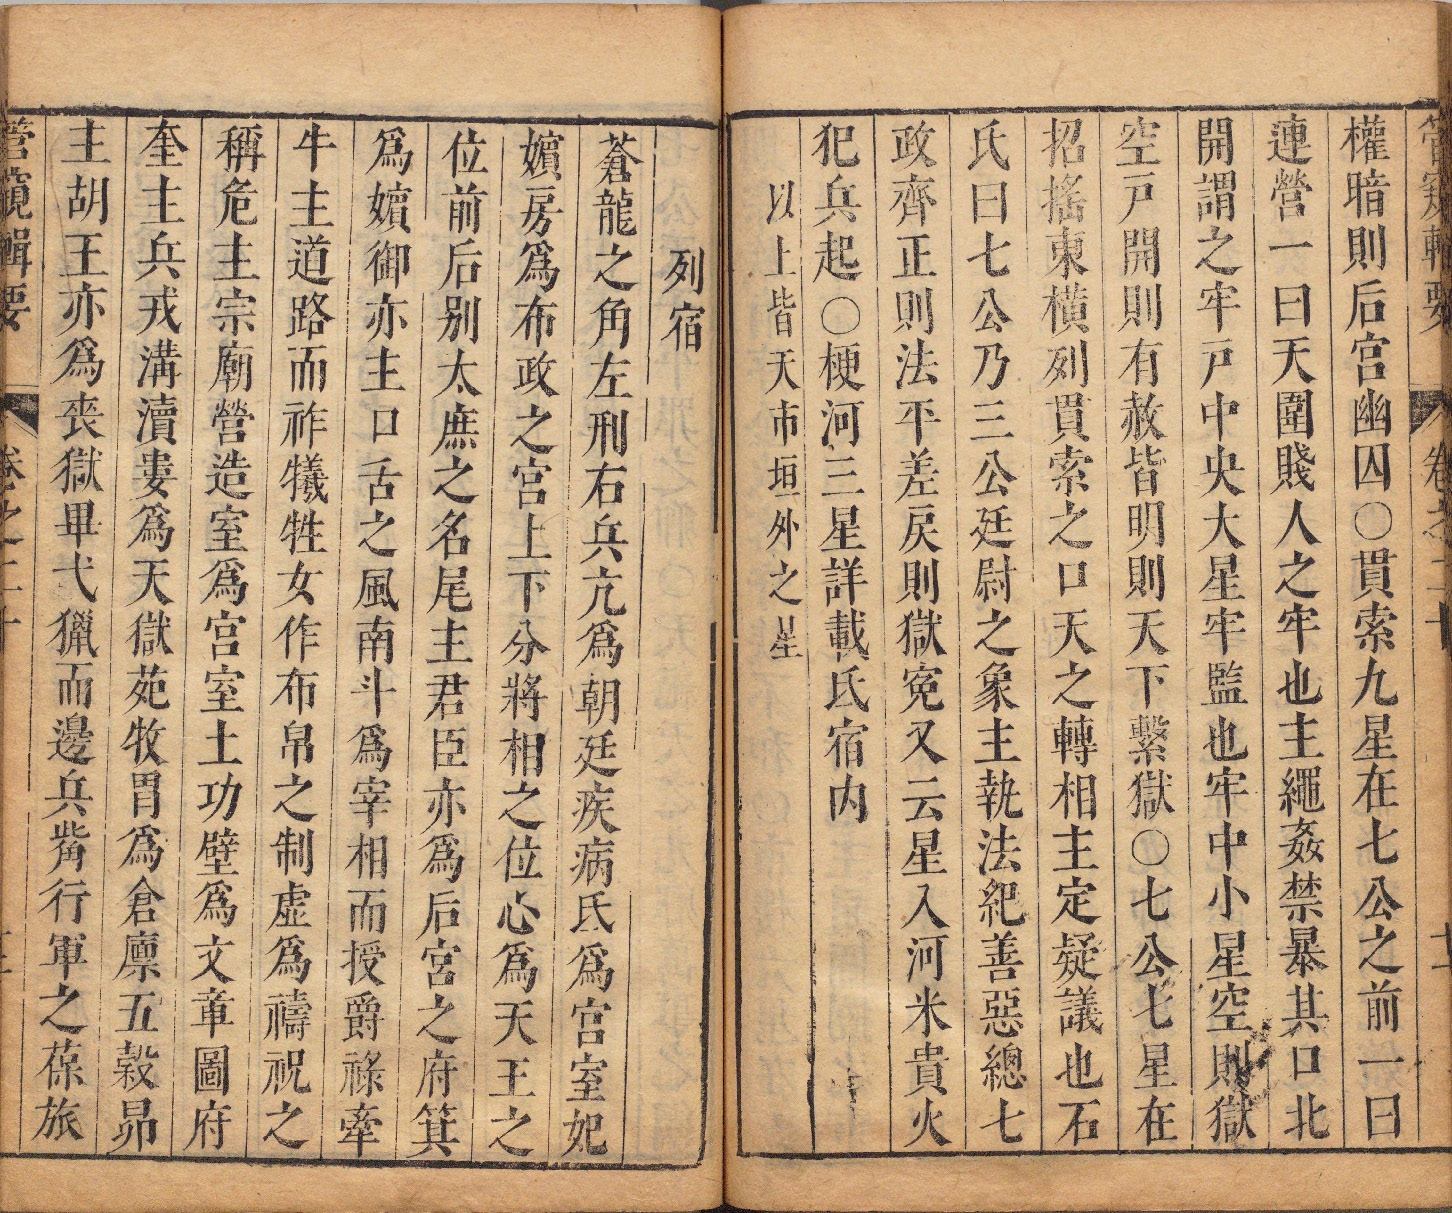 管窺輯要 卷之二十 十一
權暗則后宮幽囚〇貫索九星在七公之前一曰
連營一曰天圍賤人之牢也主繩姦禁暴其口北
開謂之牢戸中央大星牢監也牢中小星空則獄
空戸開則有赦皆明則天下繫獄〇七公七星在
招搖東橫列貫索之口天之轉相主定疑議也石
氏曰七公乃三公廷尉之象主執法紀善惡總七
政齊正則法平差戾則獄寃又云星入河米貴火
犯兵起〇梗河三星詳載氐宿内
以上皆天市垣外之星
列宿
蒼龍之角左刑右兵亢爲朝廷疾病氐爲宮室妃
嬪房爲布政之宮上下分將相之位心爲天王之
位前后别太庶之名尾主君臣亦爲后宮之府箕
爲嬪御亦主口舌之風南斗爲宰相而授爵祿牽
牛主道路而祚犧牲女作布帛之制虛爲禱祝之
稱危主宗廟營造室爲宮室土功壁爲文章圖府
奎主兵戎溝瀆婁爲天獄苑牧胃爲倉廪五穀昴
主胡王亦爲喪獄畢弋獵而邊兵觜行軍之葆旅
管窺輯要 卷之二十